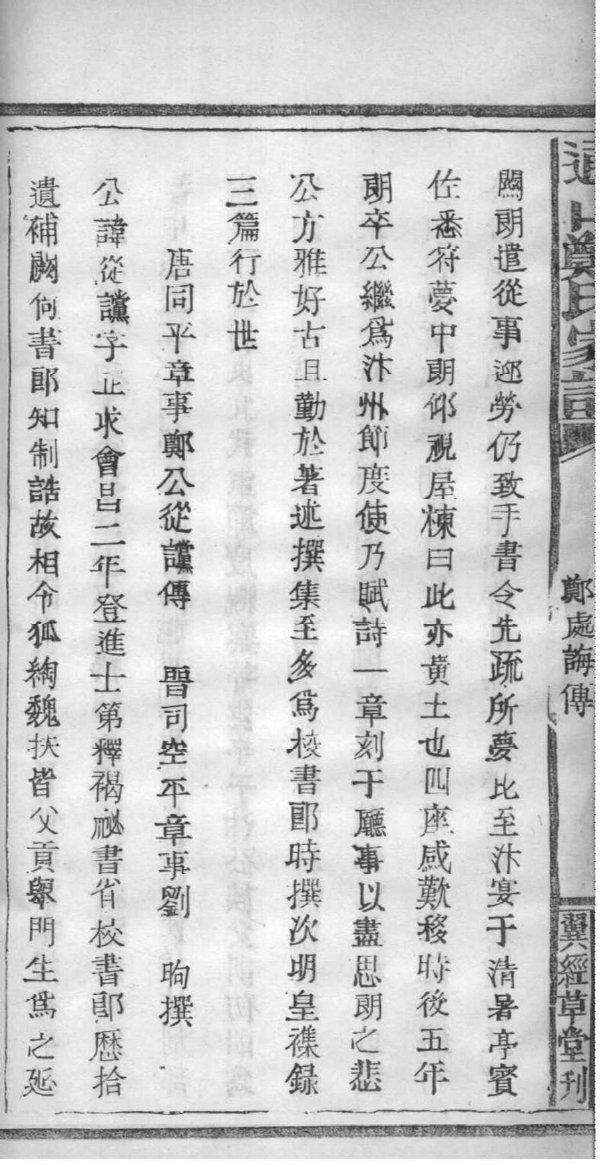 鄭氏家譜
鄭處誨傳
翼經草堂刊
關朗遣從事迎勞仍致手書令先疏所夢比至汴宴于清暑亭賓
佐悉符夢中朗仰視屋棟曰此亦黄土也四座感歎移時後五年
朗卒公繼爲汴州節度使乃賦詩一章刻于廳事以盡思朗之悲
公方雅好古且勤於著述撰集至多爲校書郎時撰次明皇襍錄
三篇行於世
唐同平章事鄭公從讜傳 晋司空平章事劉 昫撰
公諱從讜字正求會昌二年登進士第釋褐祕書省校書郎歷拾
遺補闕尙書郎知制誥故相令狐綯魏扶皆父貢舉門生爲之延